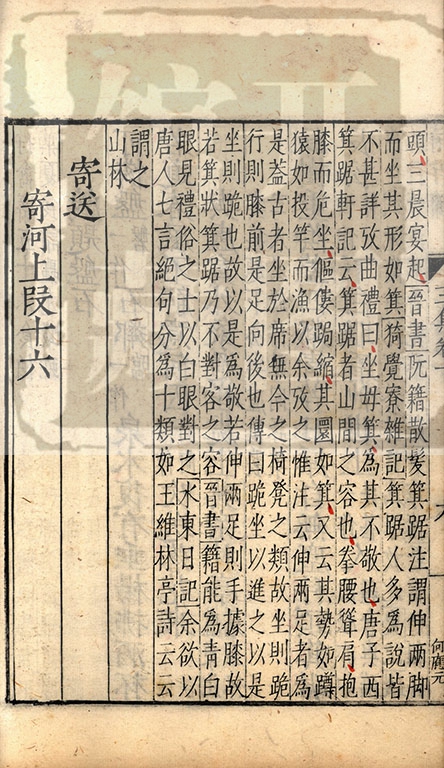 頭三晨宴起晉書阮籍散髮箕踞注謂伸兩脚
而坐其形如箕猗覺寮雜記箕踞人多為說皆
不甚詳攷曲禮曰坐毋箕為其不敬也唐子西
箕踞軒記云箕踞者山間之容也拳腰聳肩抱
膝而危坐傴僂跼縮其圜如箕又云其勢如蹲
猿如投竿而漁以余攷之惟注云伸兩足者為
是蓋古者坐於席無今之椅凳之類故坐則跪
行則膝前是足向後也傳曰跪坐以進之以是
坐則跪也故以是為敬若伸兩足則手據膝故
若箕狀箕踞乃不對客之容晉書籍能為青白
眼見禮俗之士以白眼對之水東日記余欲以
唐人七言絕句分為十類如王維林亭詩云云
謂之
山林
寄送
寄河上段十六
何應元